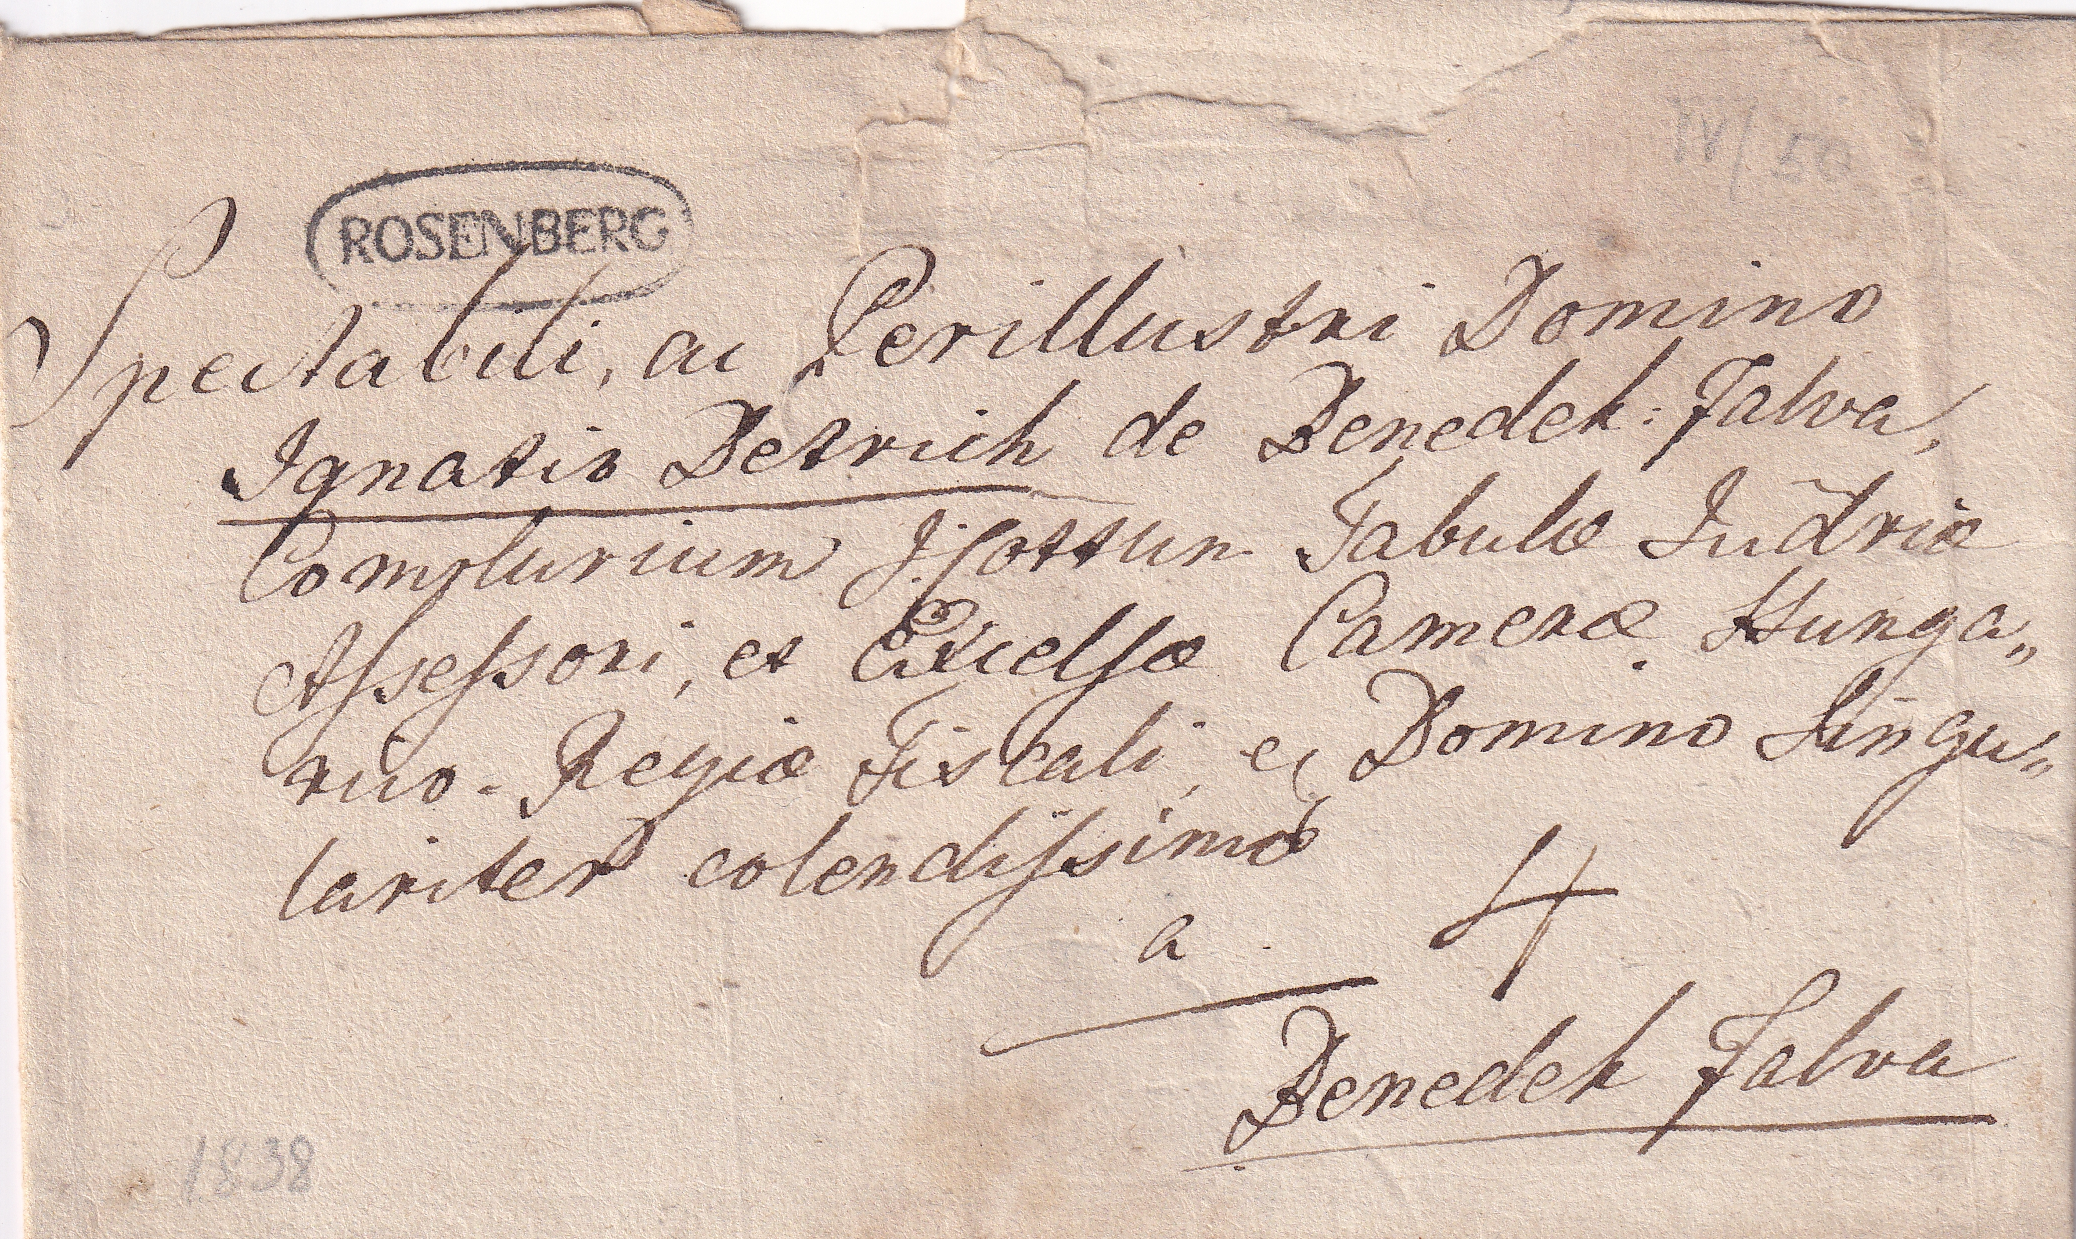 IV/50
ROSENBERG
Spectabili, ac Perillustri Domino
Ignatio Detrich de Benedek-Falva,
Complurium I. Cottuum Tabulæ Judriæ
Assessori, et Excelsæ Cameræ Hunga„
rico-Regiæ Fiscali, et Domino Singu„
lariter colendissimo
a
4
Benedek Falva
1838